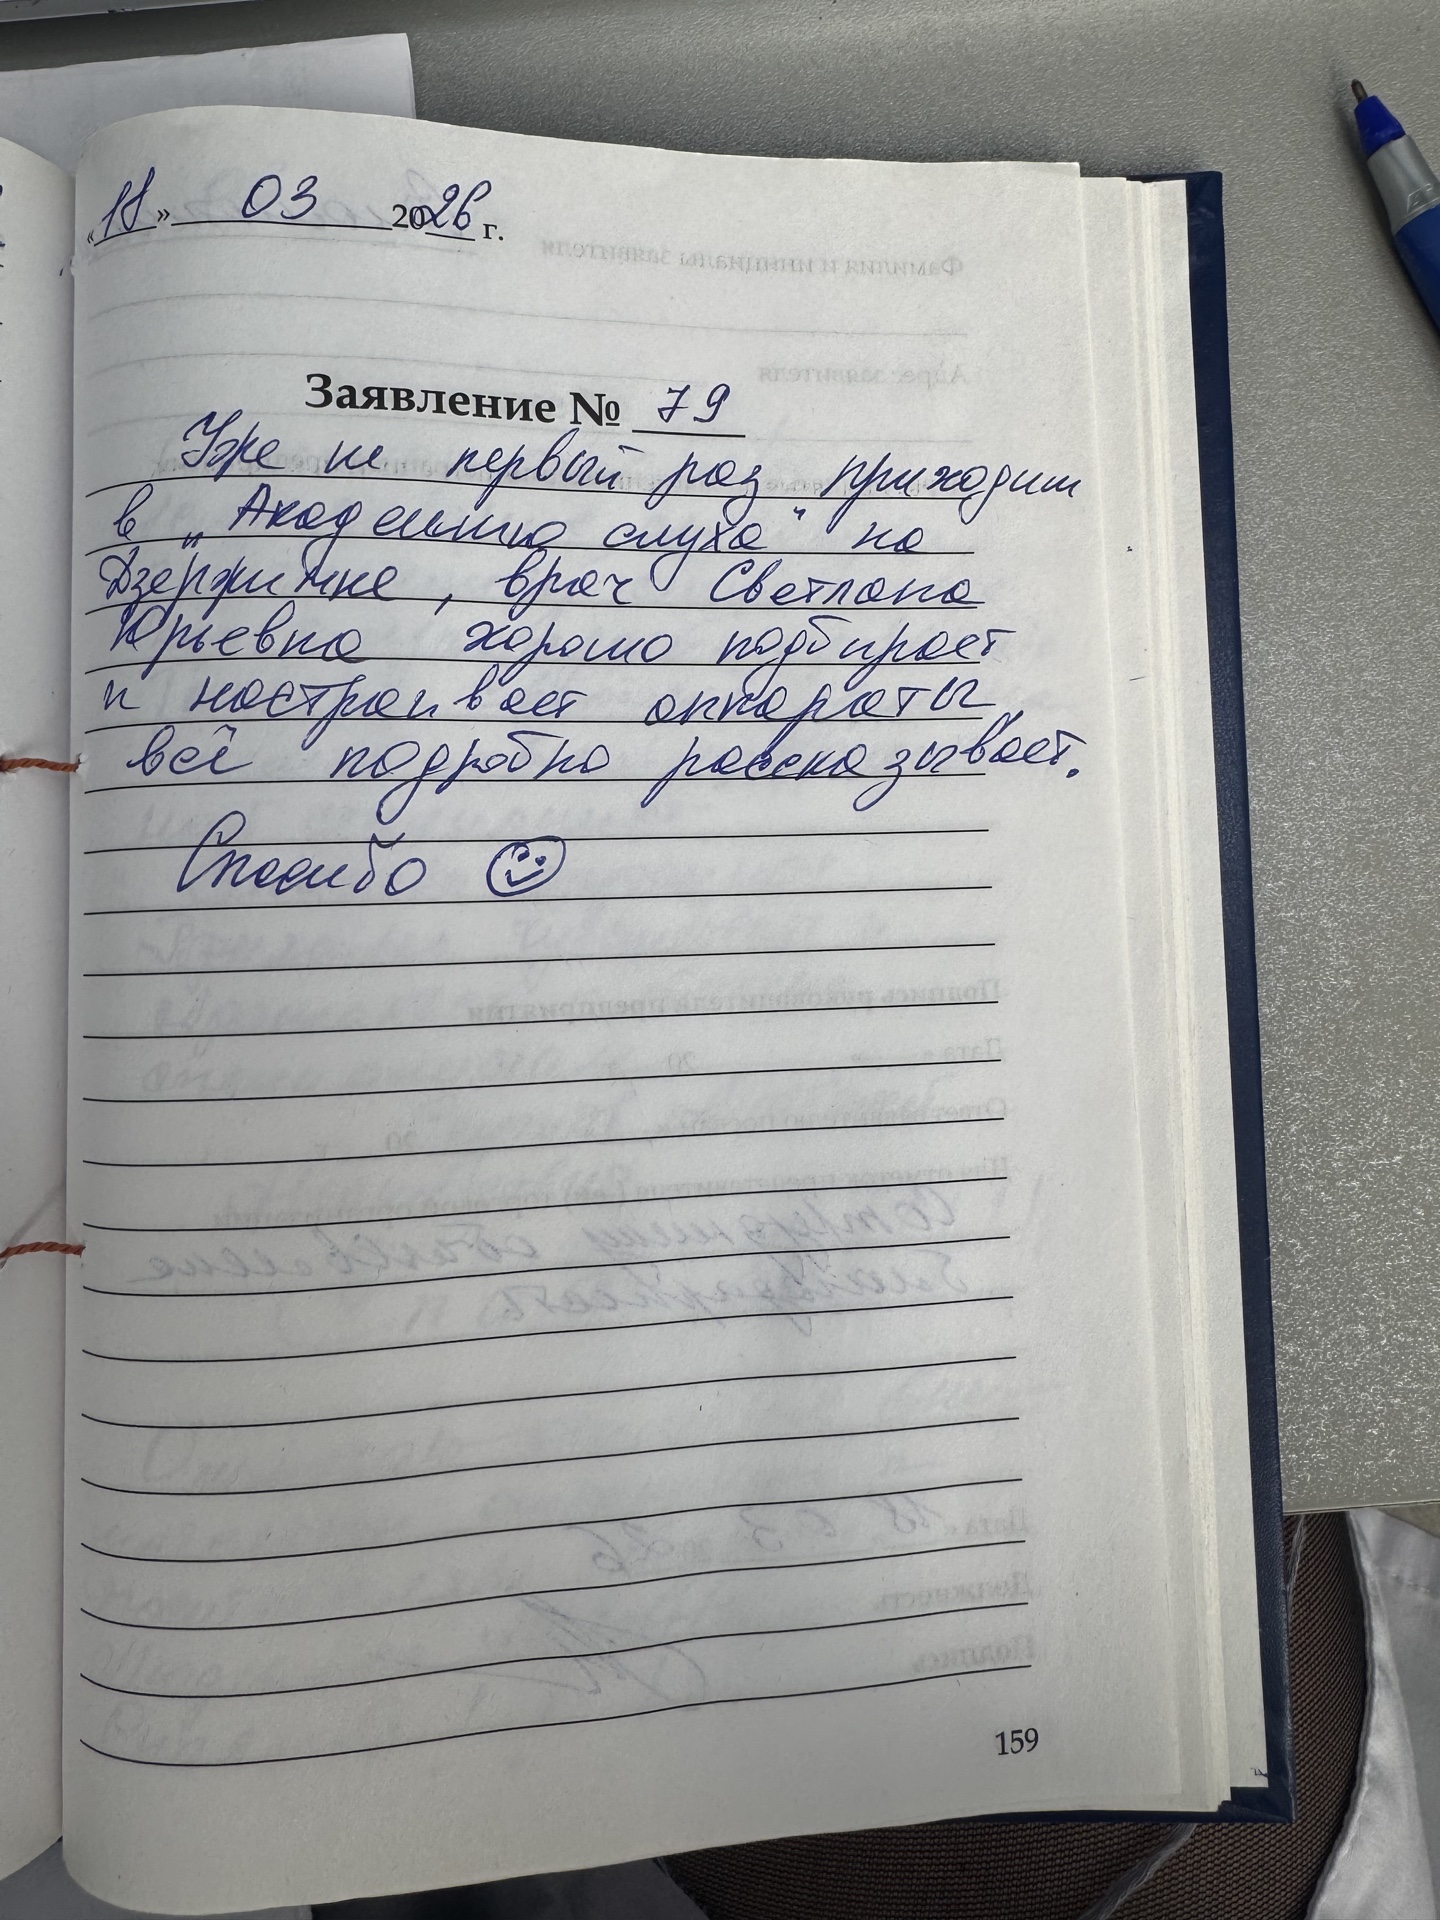 «18» 03 2026 г.
Заявление № 79
Уже не первый раз приходим
в „Академию слуха" на
Дзержинке, врач Светлана
Юрьевна хорошо подбирает
и настраивает аппараты
всё подробно рассказывает.
Спасибо
159